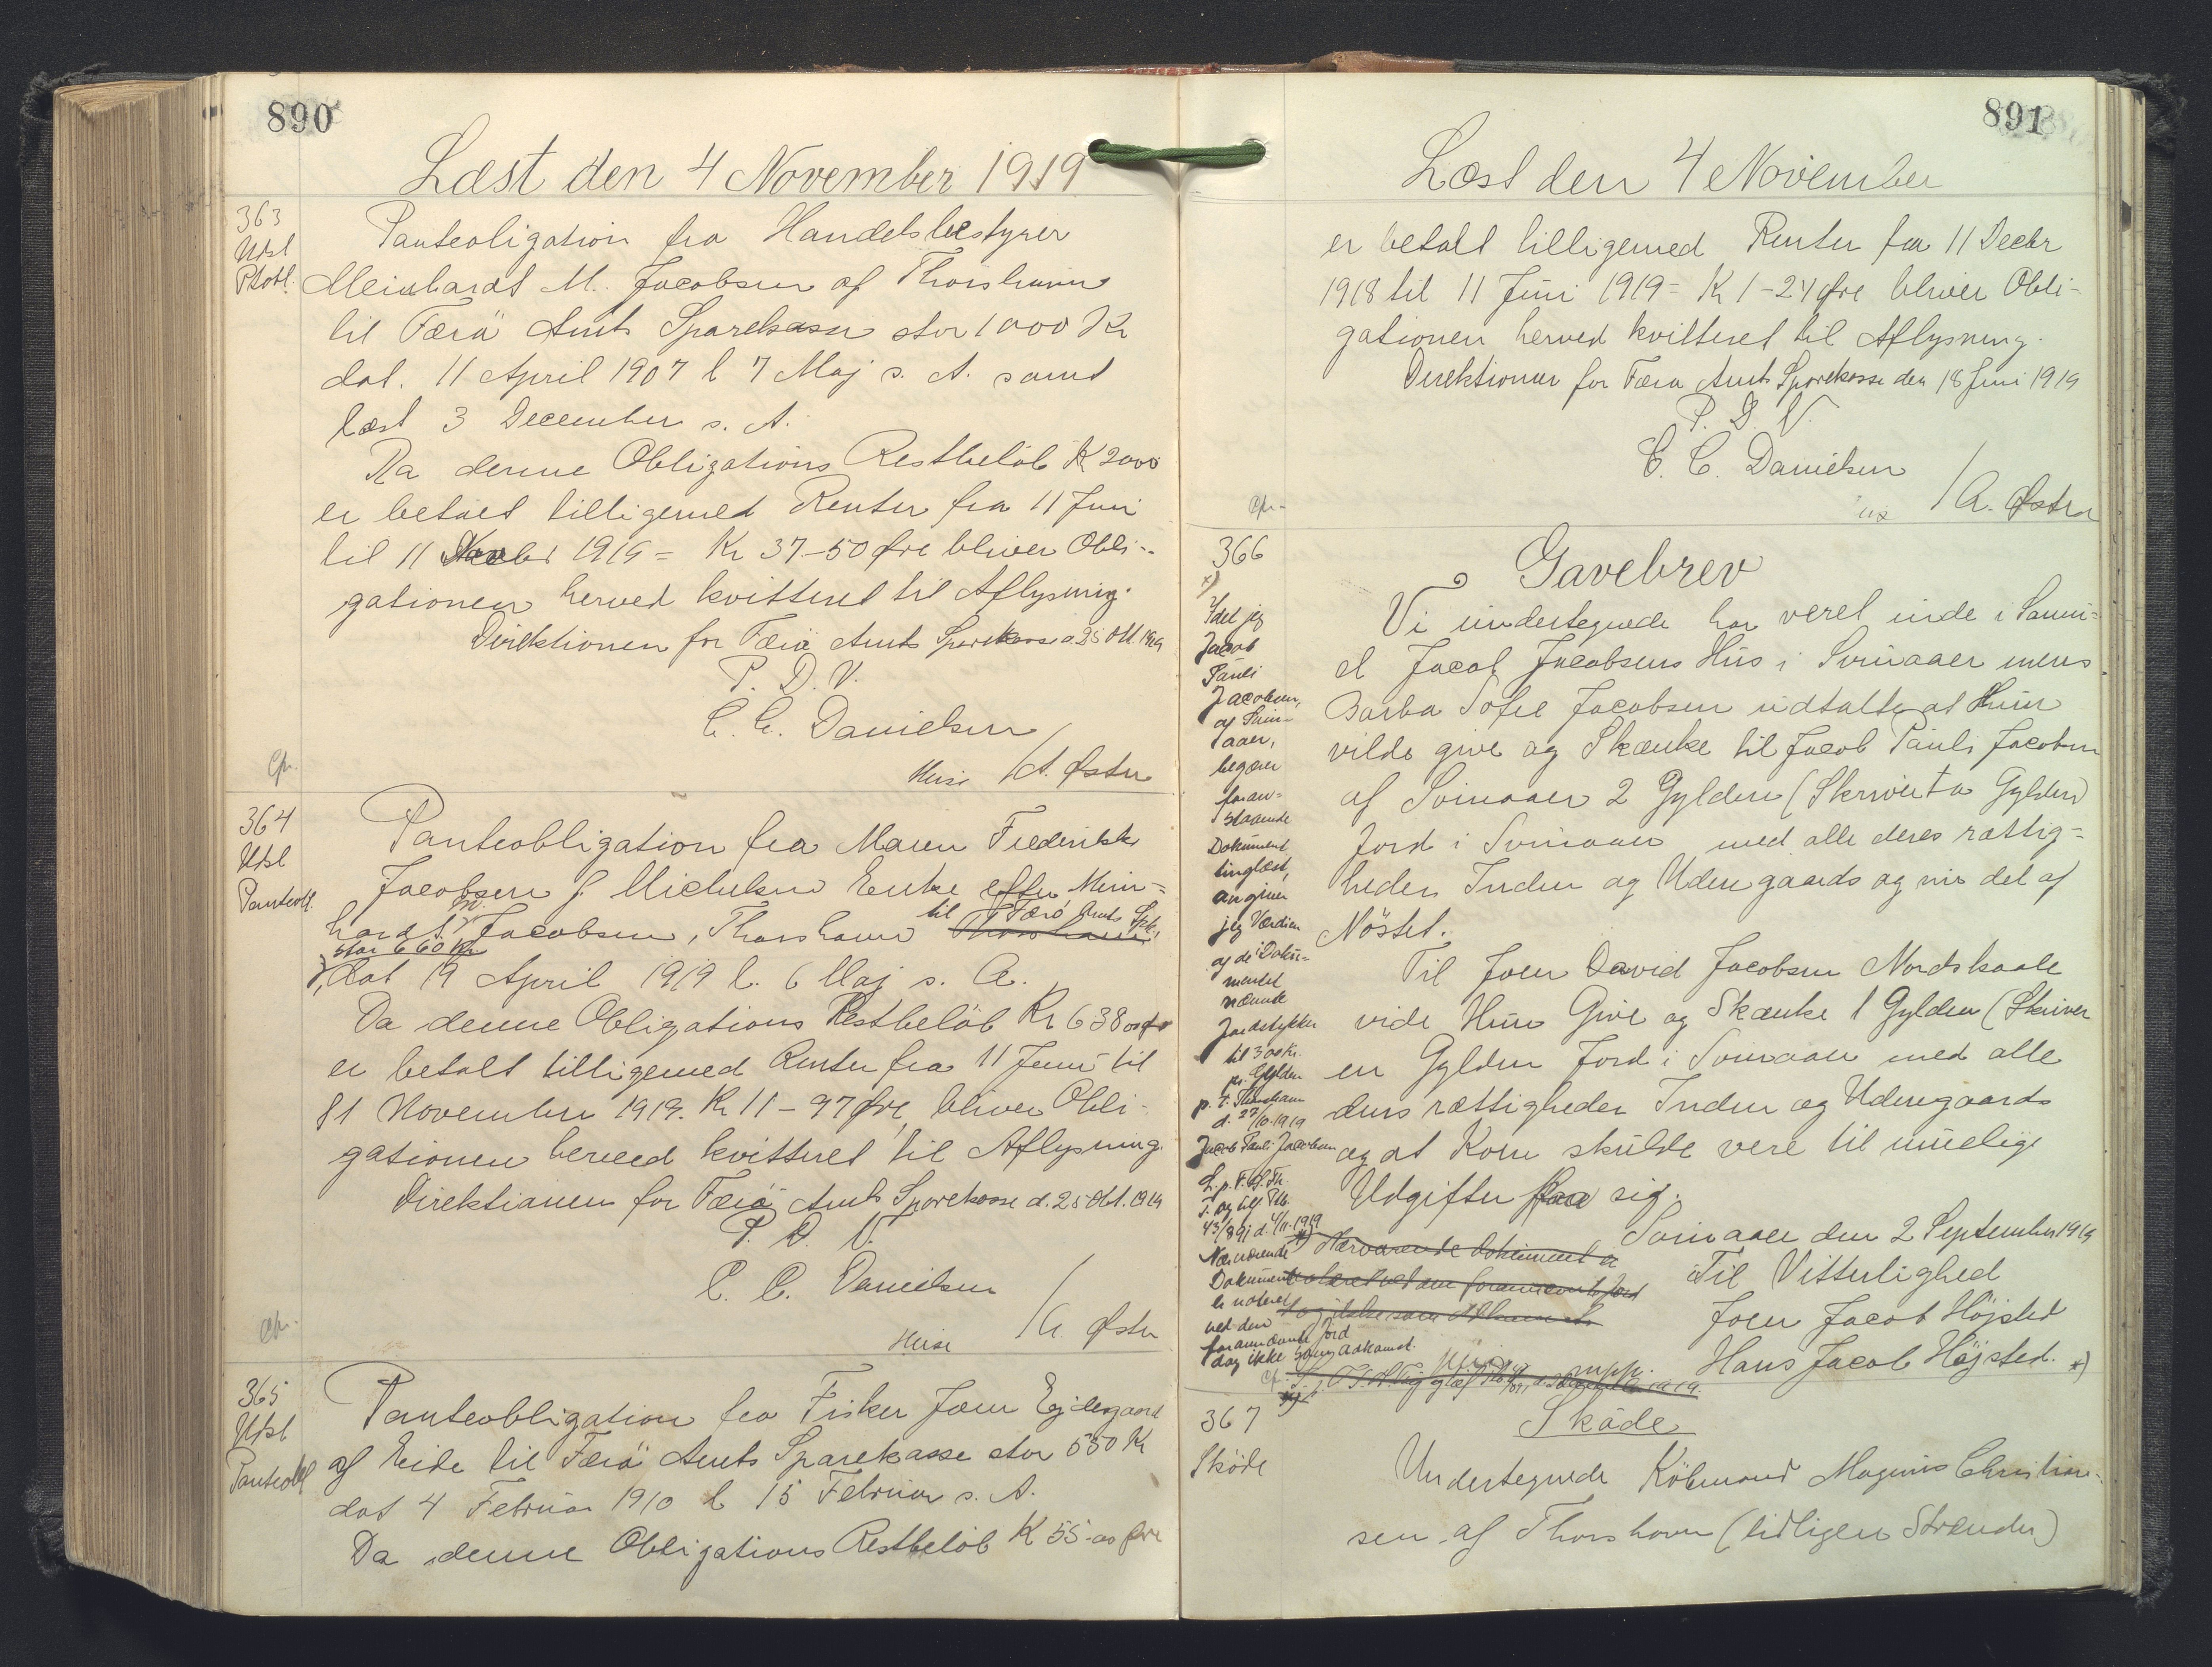 890
Læst den 4 November 1919
363
Udsl
Ptobl.
Panteoligation fra Handelsbestyrer
Meinhardt M. Jacobsen af Thorshavn
til Færø Amts Sparekasse stor 1000 Kr
dat. 11 April 1907 l 7 Maj s. A. samt
læst 3 December s. A.
Da denne Obligations Restbeløb K 2000
er betalt tilligemed Renter fra 11 Juni
til 11 1919 = Kr 37-50 Øre bliver Obli-
gationen herved kvitteret til Aflysning.
Direktionen for Færø Amts Sparekasse d 25 Okt 1919
P. D. V.
C. C. Danielsen
/A. Østrø
Cfr.
364
Udsl
Panteobl.
Panteobligation fra Maren Frederikke
Jacobsen f. Michelsen Enke efter Mein-
hardt M. Jacobsen, Thorshavn til Færø Amts Spk.,
stor 660 Kr
dat 19 April 1919 l. 6 Maj s. A.
Da denne Obligations Restbeløb Kr 638
er betalt tilligemed Renter fra 11 Juni til
11 November 1919. Kr 11-97 Øre, bliver Obli-
gationen herved kvitteret til Aflysning.
Direktionen for Færø Amts Sparekasse d. 25 Okt. 1919
P. D. V.
C. C. Danielsen
/A. Østrø
Cfr.
365
Udsl
Panteobl
Panteobligation fra Fisker Joen Ejdesgaard
af Eide til Færø Amts Sparekasse stor 550 Kr
dat 4 Februar 1910 l 15 Februar s. A.
Da denne Obligations Restbeløb K 55-00 Øre
891
Læst den 4 November
er betalt tilligemed Renter fra 11 Decbr
1918 til 11 Juni 1919 = K 1-24 Øre bliver Obli-
gationen herved kvitteret til Aflysning.
Direktionen for Færø Amts Sparekasse den 18 Juni 1919
P. D. V.
C. C. Danielsen
/A. Østrø
Cfr.
366
Gavebrev
Vi undertegnede har verel inde i Samu-
el Jacob Jacobsens Hus i Svinaaer mens
Barba Sofie Jacobsen udtalte at Hun
vilde give og Skænke til Jacob Pauli Jacobsen
af Svinaaer 2 Gylden (Skriver to Gylden)
Jord i Svinaaer med alle deres rættig-
heder Inden og Uden gaards og nir del af
Nöstet.
Til Joen David Jacobsen Nordskaale
vide Hun Give og Skænke 1 Gylden (Skriver
en Gylden Jord i Svinaaer med alle
ders rættigheder Inden og Udengaards
og at Kom skulde vere til muelige
Udgifter paa sig.
Svinaaer den 2 September 1919
Til Vitterlighed
Joen Jacob Höjsted
Hans Jacob Höjsted. *)
*)
Idet jeg
Jacob
Pauli
Jacobsen,
af Svin-
aaer,
begærer
foran-
staaende
Dokument
tinglæst,
angiver
jeg Værdien
af de i Doku-
mentet
nævnte
Jordstykker
til 300 Kr.
pr. Gylden
p. t. Thorshavn
d. 27/10. 1919
Jacob Pauli Jacobsen
L. p. F. S. Th.
T. og tilf Ptb.
43/891 d. 4/11. 1919
Nærværende
Dokument
er noteret
ved den
forannævnte Jord
dog ikke som Adkomst.
Nærværende dokument er
367
Skøde
Skøde
Undertegnede Købmand Magnus Christian-
sen af Thorshavn (tidligere Strænder)